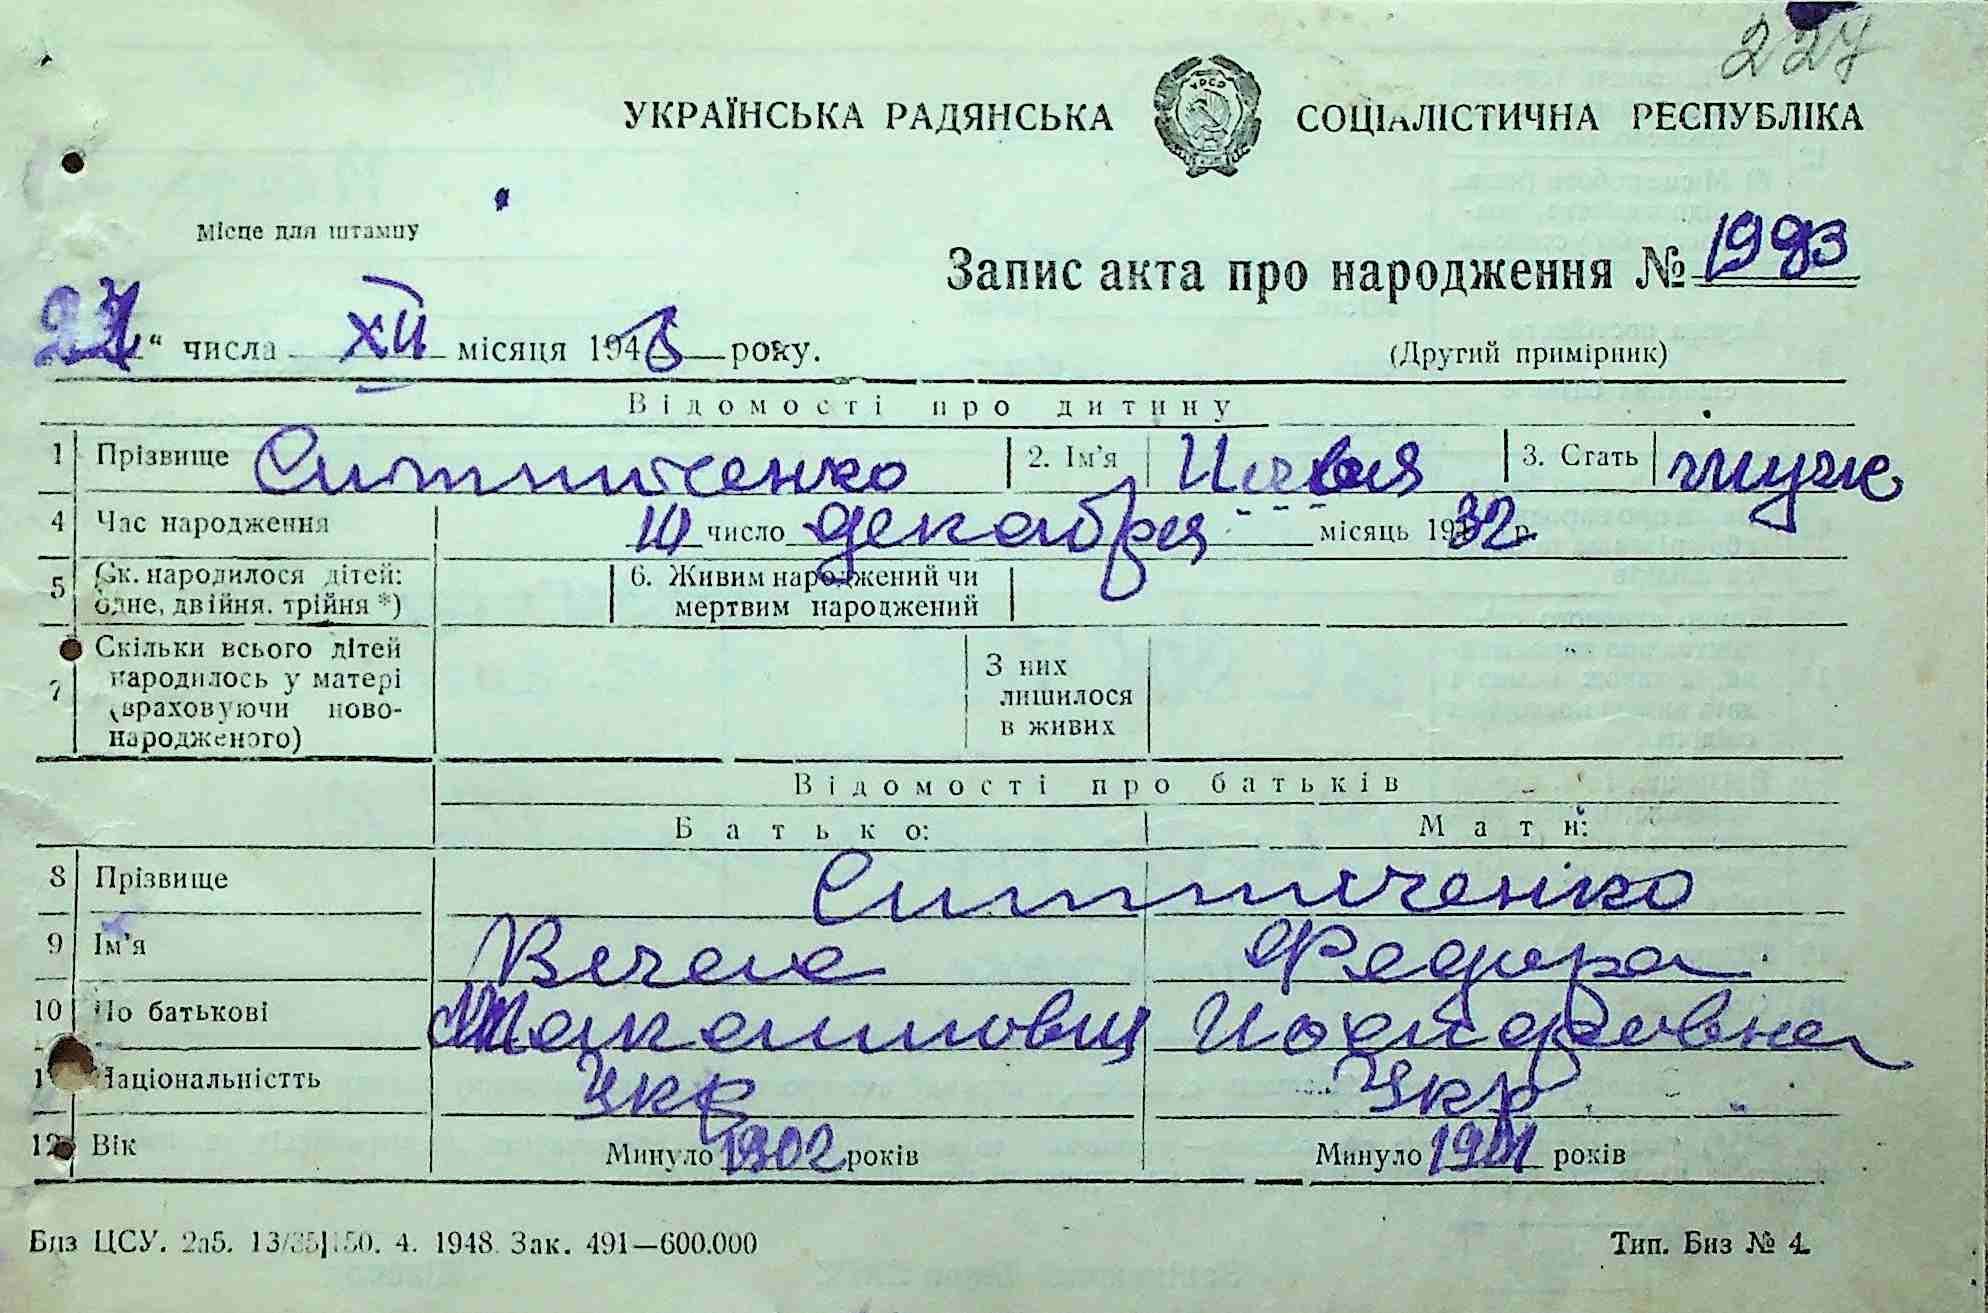 227
УКРАЇНСЬКА РАДЯНСЬКА СОЦІАЛІСТИЧНА РЕСПУБЛІКА
УРСР
Місце для штампу
Запис акта про народження № 1983
“ числа XII місяця 1948 року.
(Другий примірник)
Відомості про дитину
1 Прізвище Ситниченко 2. Ім'я 3. Стать муж
4 Час народження 10 число декабря місяць 1932 р.
5 Ск. народилося дітей: 6. Живим народжений чи
одне, двійня, трійня *) мертвим народжений
7 Скільки всього дітей З них
народилось у матері лишилося
(враховуючи ново- в живих
народженого)
Відомості про батьків
Батько: Мати:
8 Прізвище Ситниченко
9 Ім'я
10 По батькові
Національністть Укр Укр
12 Вік Минуло 1902 років Минуло 1901 років
Биз ЦСУ. 2аб. 13/35|150. 4. 1948. Зак. 491—600.000 Тип. Биз № 4.